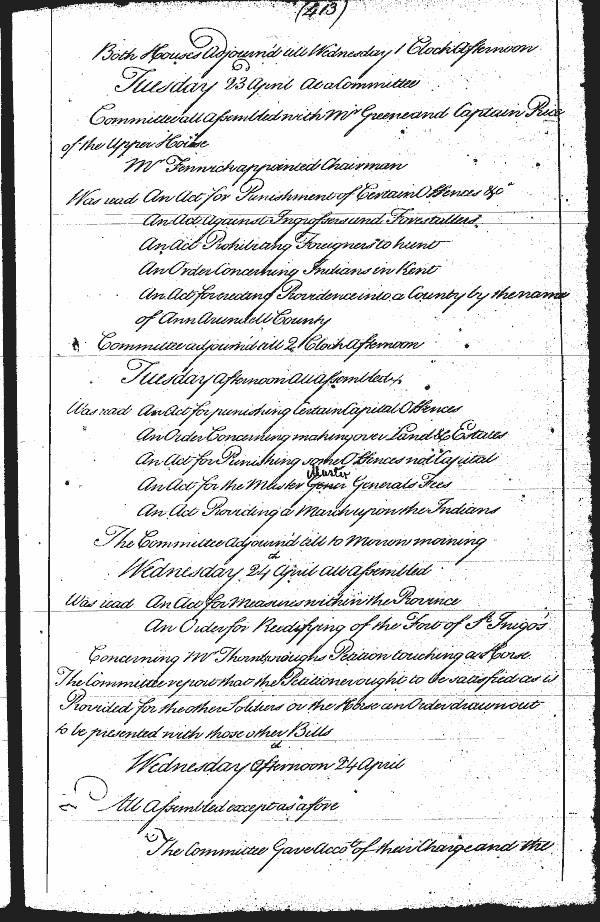 (413)
Both Houses Adjourn'd till Wednesday 1 Clock Afternoon
Tuesday 23 April At a Committee
Committee all assembled with Mr Greene and Captain Price
of the Upper House
Mr Fennick appointed Chairman
Was read An Act for Punishment of Certain Offences &c
An Act Against Ingrossers and Forestallers
An Act Prohibiting Foreigners to hunt
An Order Concerning Indians in Kent
An Act for erecting Providence into a County by the name
of Ann Arundell County
Committee adjourn'd till 2 Clock Afternoon
Tuesday afternoon all assembled
Was read An Act for punishing Certain Capital Offences
An Order Concerning making over Land & Estates
An Act for Punishing some Offences not Capital
Muster
An Act for the Muster Generals Fees
An Act Providing a March upon the Indians
The Committee Adjourn'd till to Morrow morning
Wednesday 24th April all assembled
Was read An Act for Measures within the Province
An Order for Reedifying of the Fort of St Inigo's
Concerning Mr Thornbroughs Petition touching a Horse
The Committee report that the Petitioner ought to be satisfied as is
Provided for the other Soldiers or the Horse an Order drawn out
to be presented with those other Bills
Wednesday afternoon 24th April
All Assembled except as afore
The Committee Gave Acct of their Charge and the